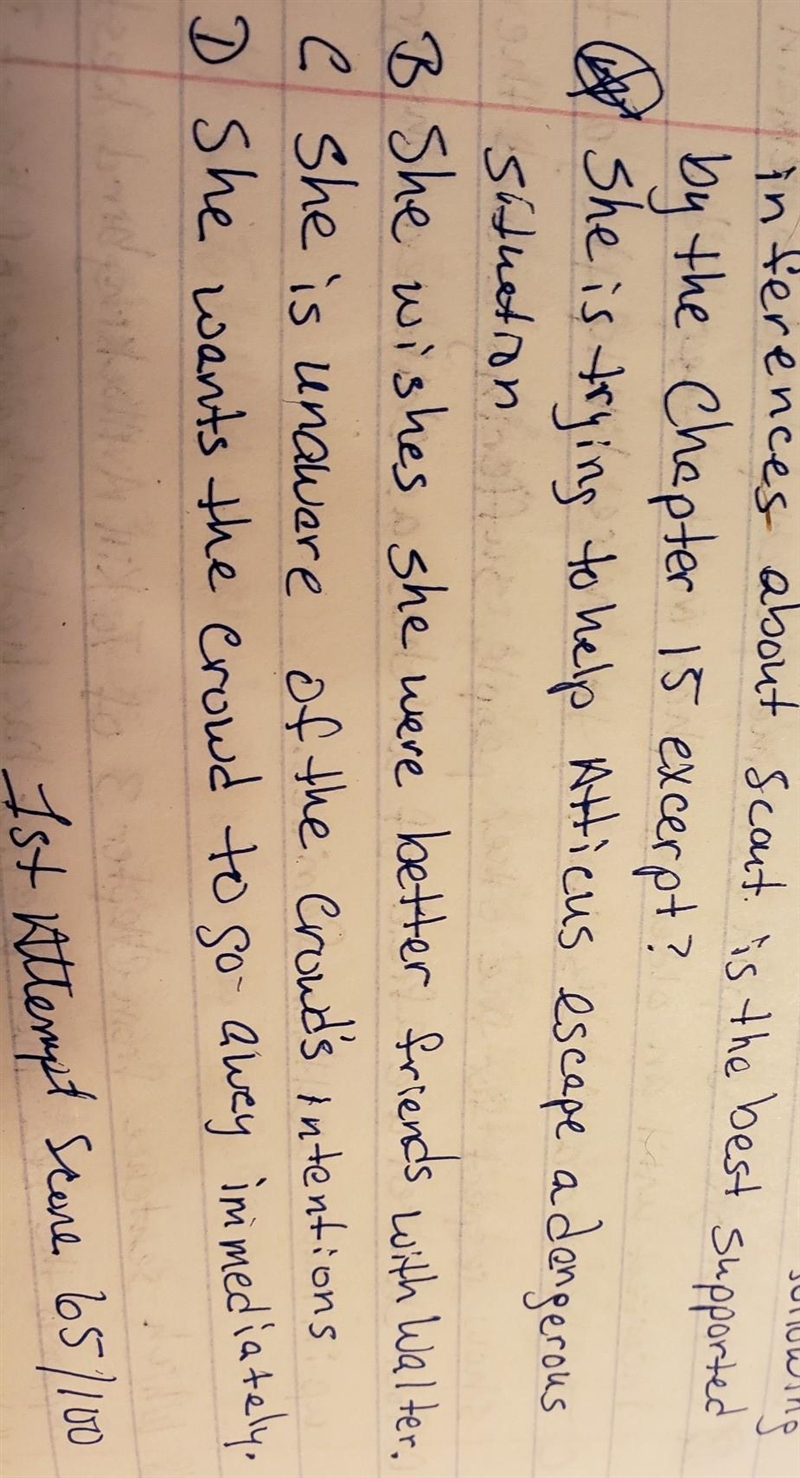 following
inferences about scout is the best supported
by the Chapter 15 excerpt?
She is trying to help Atticus escape a dangerous
situation
B She wishes she were better friends with Walter.
C She is unaware of the crowd's intentions
D She wants the crowd to go away immediately.
1st Attempt Score 65/100